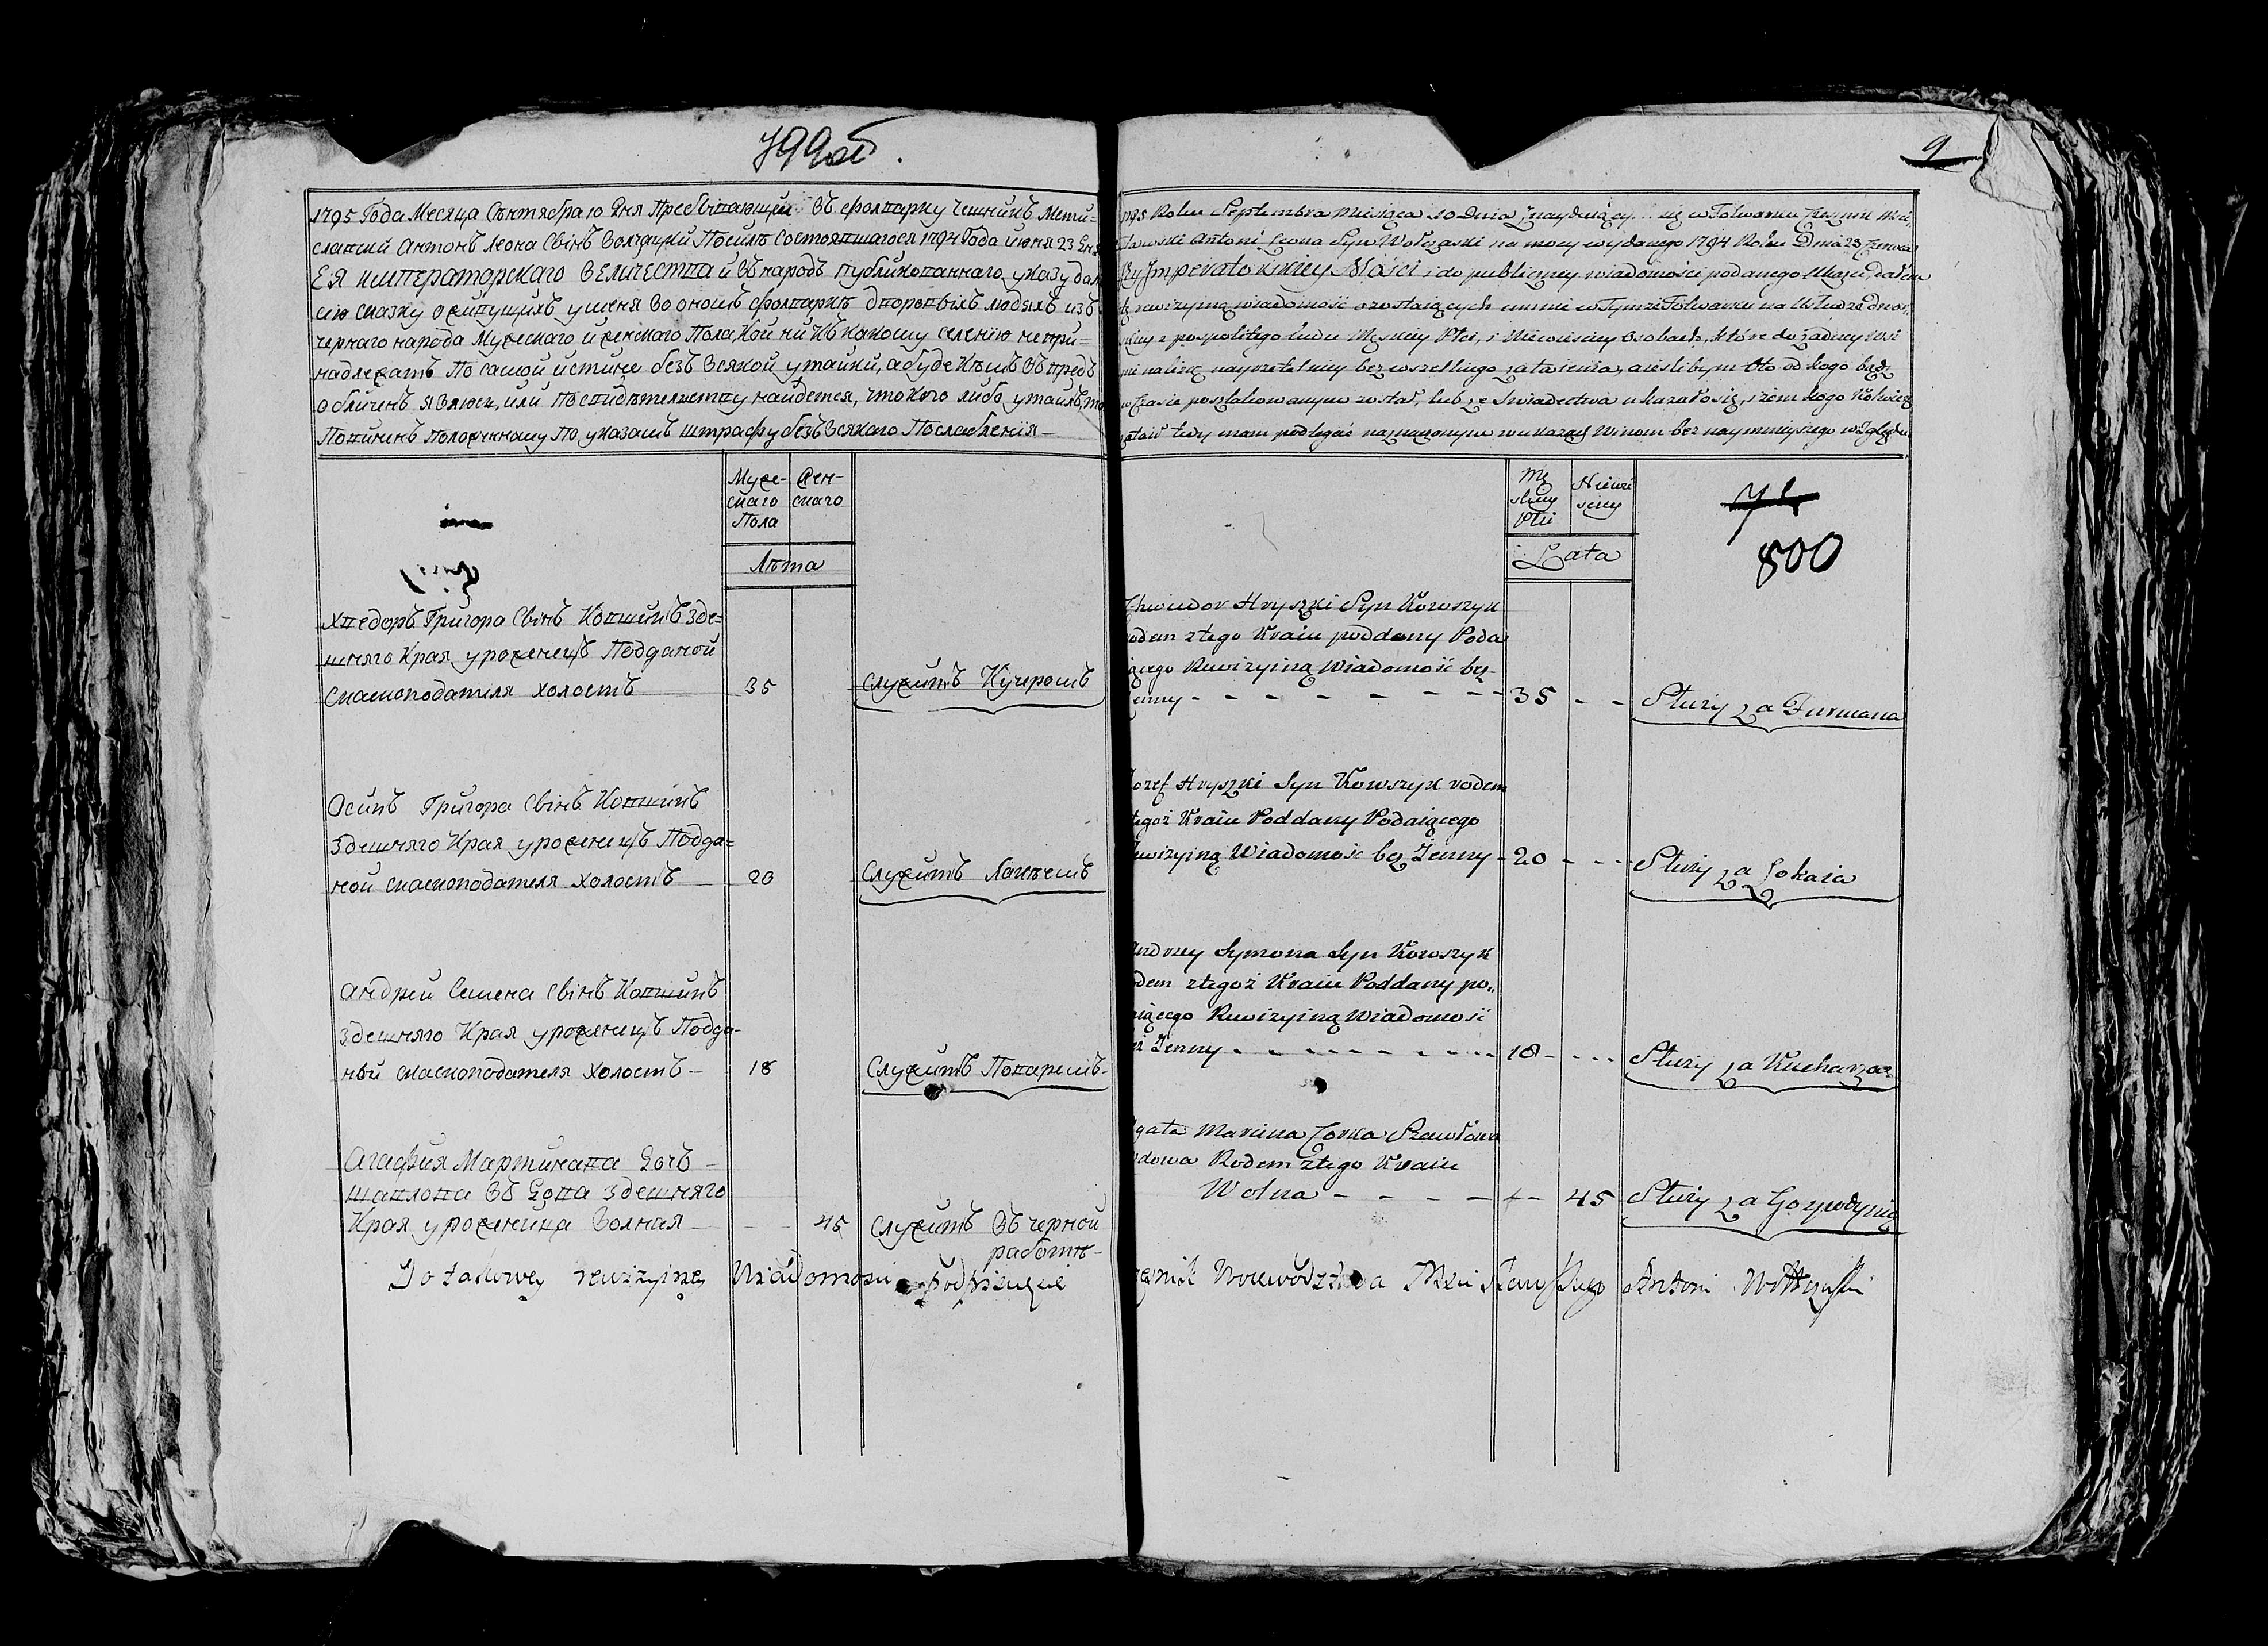 799об.
1795 Года Месяца Сентября 10 Дня Пребывающий въ фолваркy Чешникъ Мсти=
славский Антонъ Леона Сынъ Волчацкий По силе состоявшагося 1794 Года июня 23 Дня
ЕЯ императорскаго величества и въ народъ публикованнаго указу дал
сию сказку о живущихъ у меня во ономъ фолварке дворовыхъ людяхъ изъ
чернаго народа Мужескаго и женскаго Пола, Кои ни къ какому селению не при=
надлежатъ По самой истине безъ всякой утайки, а буде кемъ въ предь
обличенъ явлюся, или По свидетелству найдется, что кого либо утаилъ, то
Повиненъ Положенному По указамъ штрафу безъ всякаго Послабления
Муже-
скаго
Пола
Жен-
скаго
Лѣта
Хведоръ Григора Сынъ Ковшикъ Зде=
шняго Края уроженецъ Подданой
сказкоподателя холостъ 35 служитъ Кучромъ
Осипъ Григора Сынъ Ковшикъ
Здешняго Края уроженецъ Подда=
ной сказкоподателя холостъ 20 Служитъ Лакеемъ
Андрей Семена Сынъ Ковшикъ
Здешняго Края уроженецъ Подда-
ный сказкоподателя холостъ 18 Служитъ Поваремъ
Агафия Мартинава Дочь
Шавлова Вдова здешняго
Края уроженица Волная 45 служитъ въ черной
работѣ
Do takowey rewizyiney Wiadomosci podpisuię
9
1795 Roku Septembra Miesiąca 10 Dnia Znayduiący się w Folwarku Czesznik Mści,,
sławski Antoni Leona Syn Wołczacki na mocy wydanego 1794 Roku Dnia 23 Czerwca
Jey Imperatorskiey Mości i do publiczney wiadomości podanego Ukazu dałem
tę rewizyiną wiadomość o zostaiących u mnie w Tymże Folwarku na Usłudze dwor,,
skiey z pospolitego ludu Męskiey Płci, i Niewieściey Osobach, które do żadney Wsi
nie należą nayrzetelniey bez wszelkiego zataienia, a ieślibym Oto od kogo bądź
w Czasie poszlakowanym został, lub ze Swiadectwa ukazałosię, iżem kogo Kolwiek
zataił tedy mam podlegać naznaczonym w ukazach Winom bez naymnieyszego względu
Mę
skiey
Płci
Niewie
sciey
Lata
800
Chwiedor Hryszki Syn Kowszyk
rodem ztego Kraiu poddany Poda
iącego Rewizyiną Wiadomość bez-
żenny 35 Służy za Furmana
Jozef Hryszki Syn Kowszyk rodem
ztegoż Kraiu Poddany Podaiącego
Rewizyiną Wiadomość bez Żenny 20 Służy za Lokaia
Andrzey Symona Syn Kowszyk
rodem ztegoż Kraiu Poddany po,,
daiącego Rewizyiną Wiadomość
bez Żenny 18 Służy za Kucharza
Agata Marcina Corka Szawłowa
wdowa Rodem ztego Kraiu
Wolna 45 Służy za Gospodynię
Czesnik Woiewodztwa Mscisławskiego Antoni Wołczacki